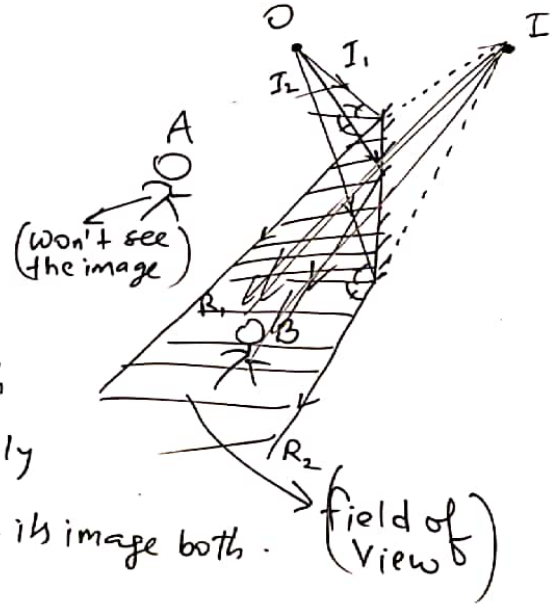 O
I
I₁
I₂
A
(won't see
the image)
R₁
B
ly
R₂
its image both.
(field of
View)